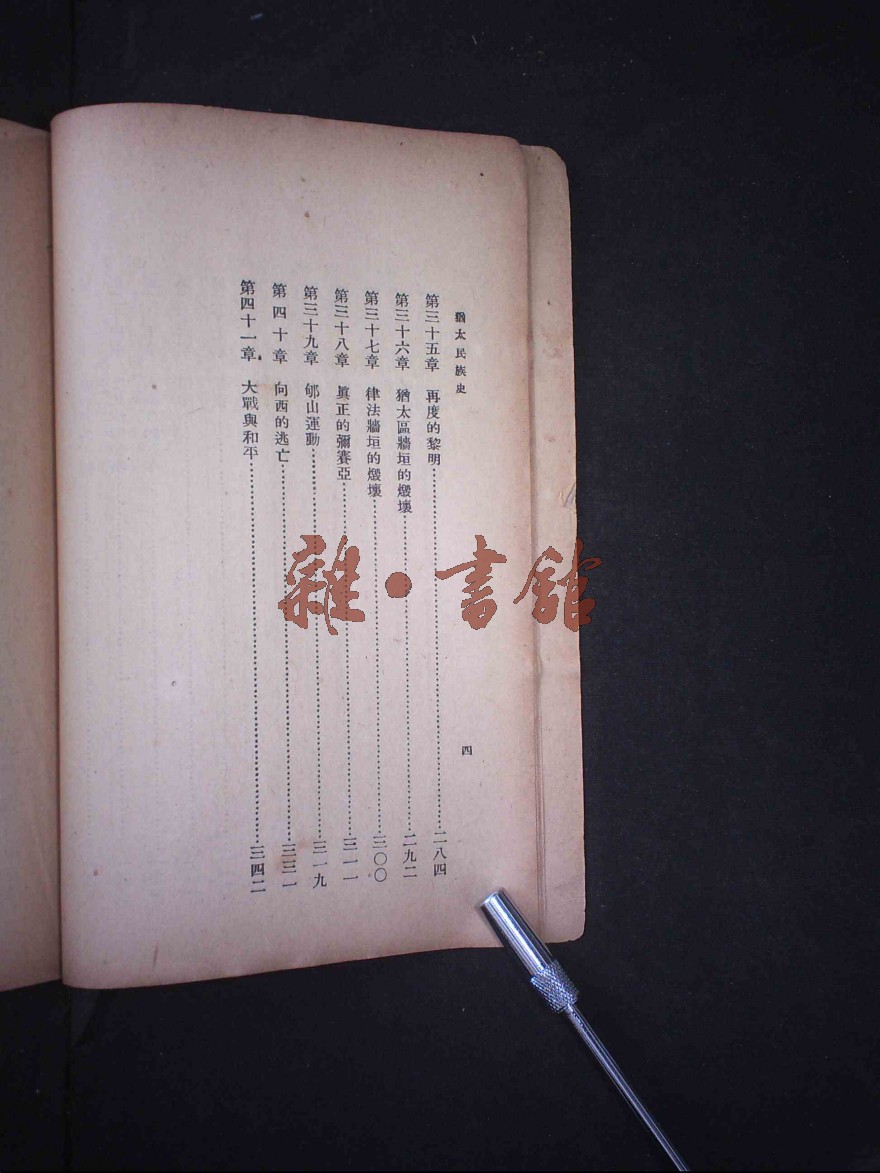 猶太民族史
四
第三十五章 再度的黎明……二八四
第三十六章 猶太區牆垣的燬壞……二九二
第三十七章 律法牆垣的燬壞……三〇〇
第三十八章 眞正的彌賽亞……三一一
第三十九章 郇山運動……三一九
第四十章 向西的逃亡……三三一
第四十一章 大戰與和平……三四二
雜·書館